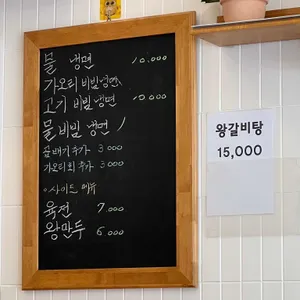 물 냉면 10,000
가오리 비빔냉면
고기 비빔 냉면 10,000
물비빔 냉면
곱빼기 추가 3,000
가오리회 추가 3,000
*사이드 메뉴
육전 7,000
왕만두 6,000
왕갈비탕
15,000